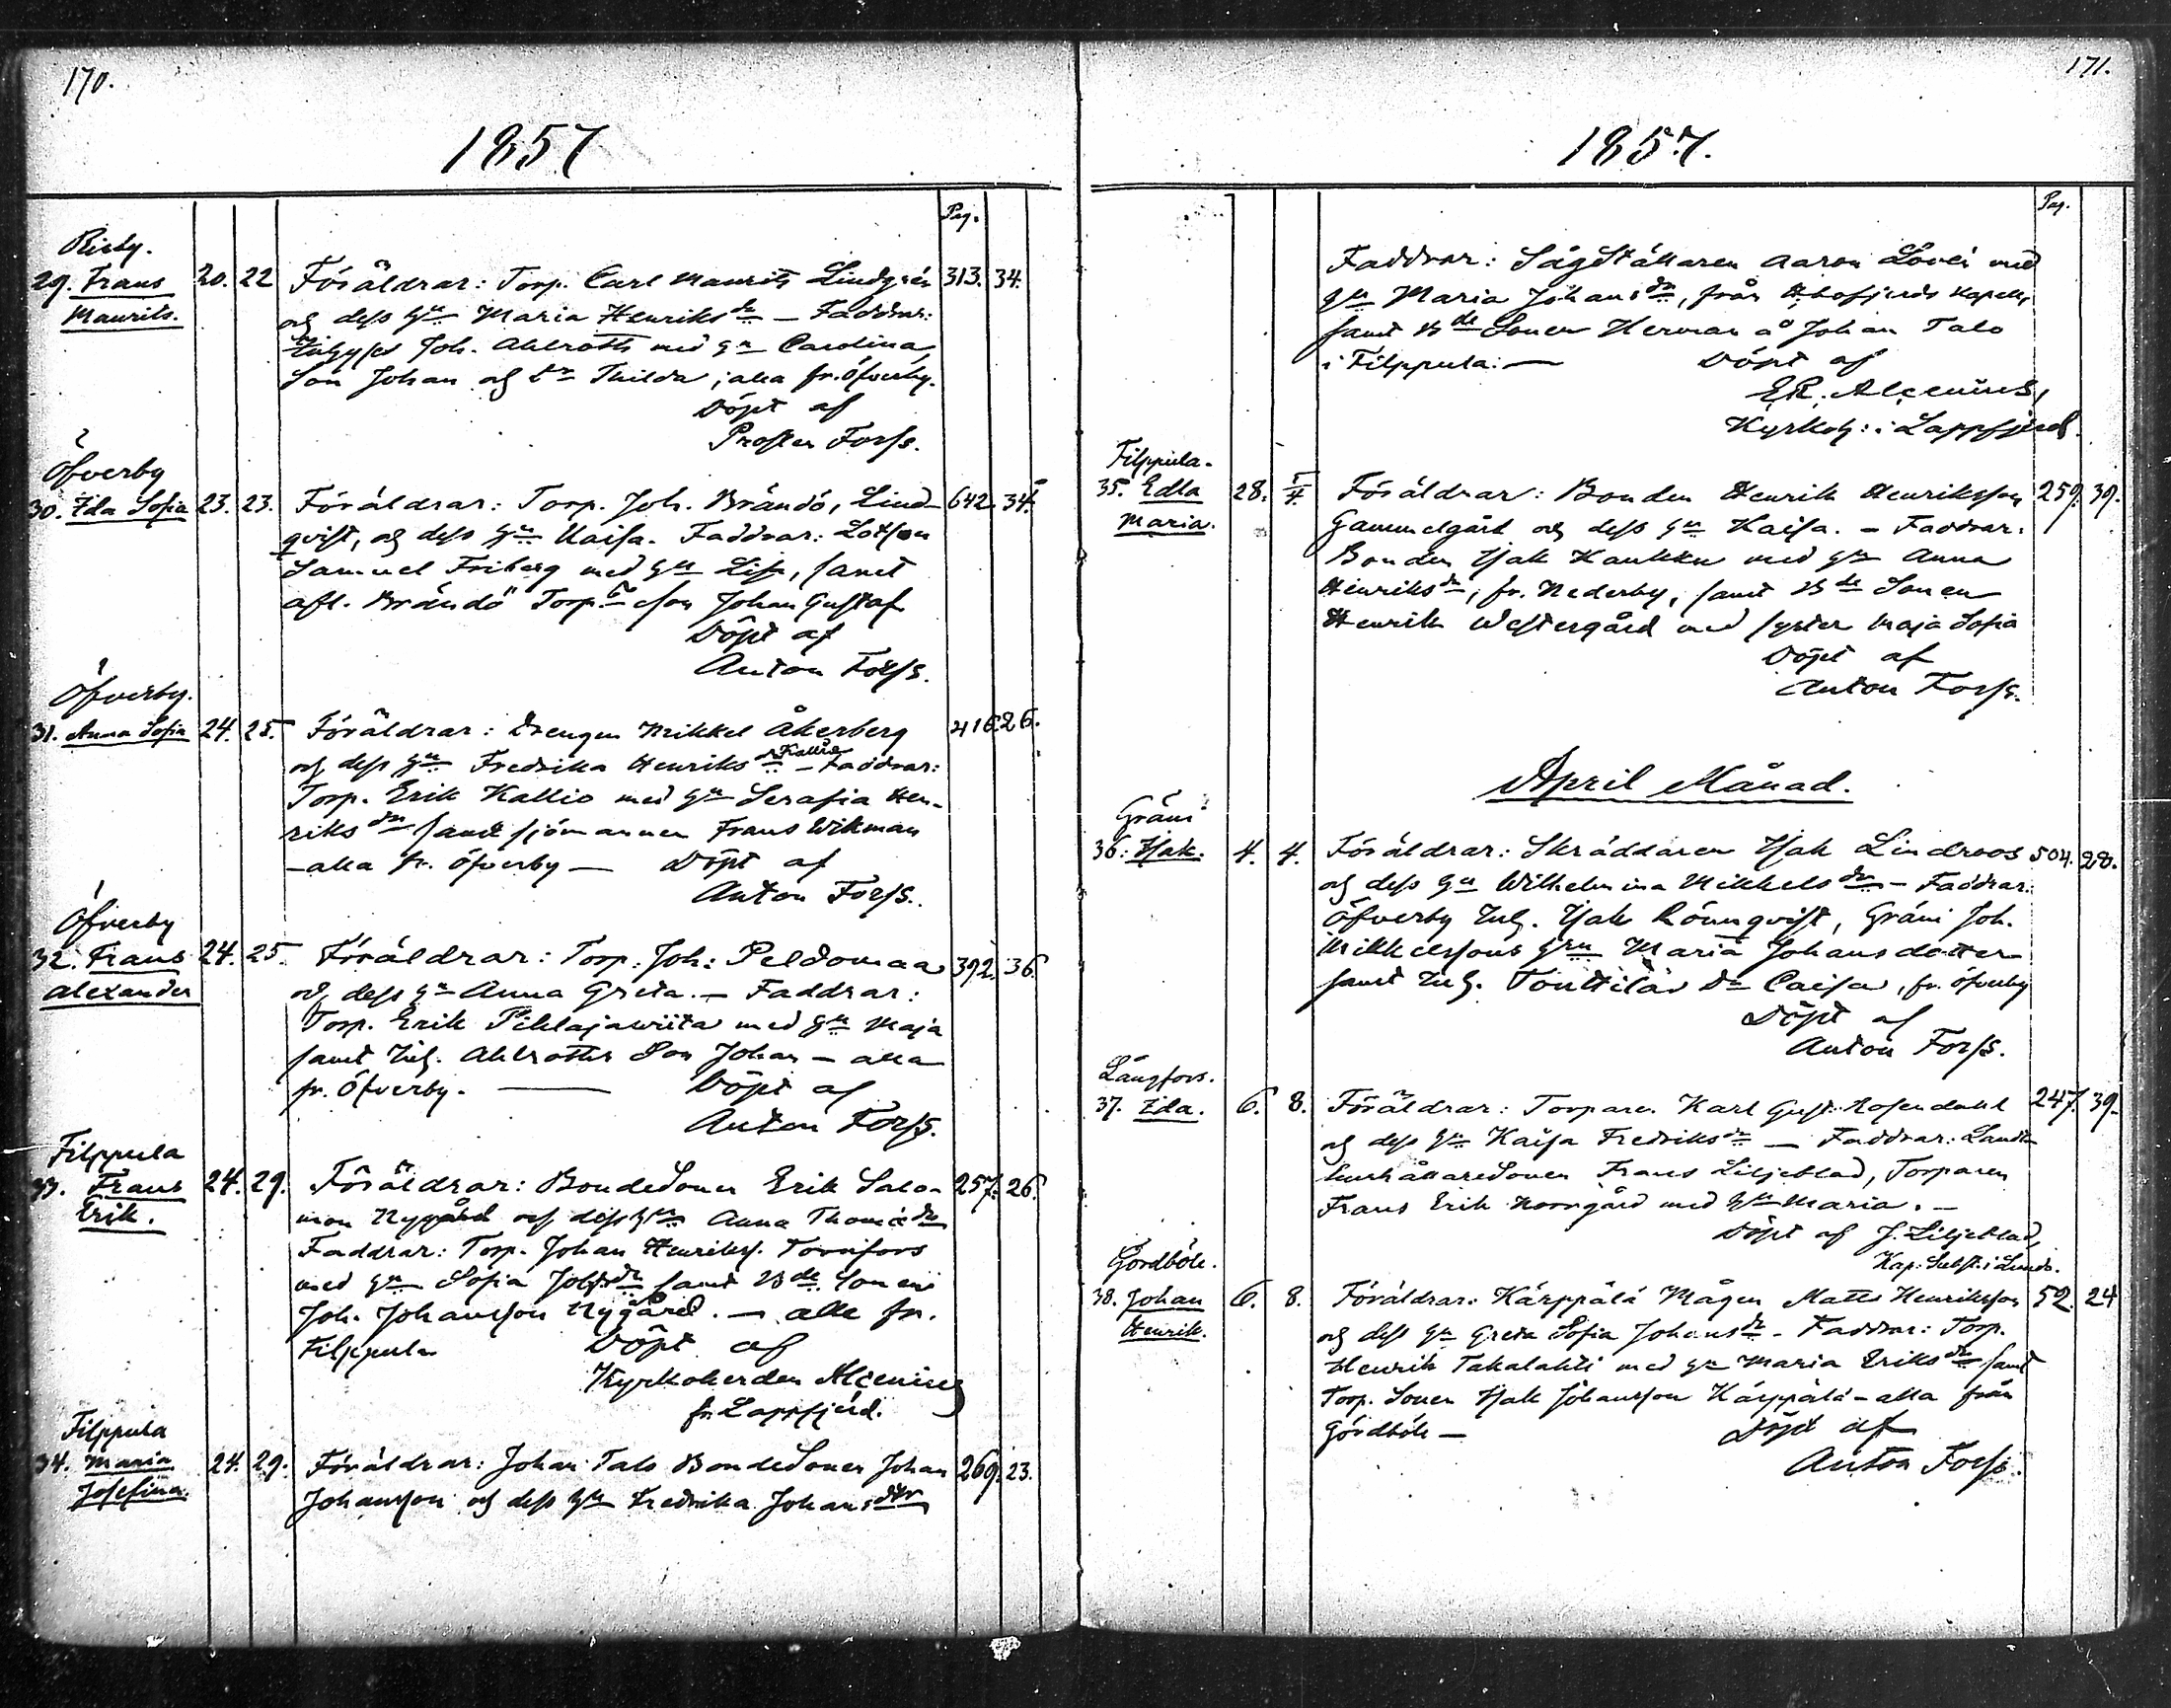 170.
1857
Pag.
Risby.
29. Frans 20. 22 Föräldrar: Torp. Carl Maurits Lindgrén 313. 34.
Maurits. och dess hu Maria Henriksdr — Faddrar:
Joh. Ahlroth med hu Carolina
Son Johan och dr Thilda, alla fr. Öfverby.
Döpt af
Prosten Forss.
Öfverby
30. Ida Sofia 23. 23. Föräldrar: Torp. Joh. Brändö, Lind- 642. 34.
qvist, och dess hu Kaisa. Faddrar: Lotson
Samuel Friberg med hu Lisa, samt
afl. Brändö Torp. Son Johan Gustaf
Döpt af
Anton Forss.
Öfverby.
31. Anna Sofia 24. 25. Föräldrar: Drengen Mikkel Åkerberg 416. 26.
och dess hu Fredrika Henriksdr Kallio — Faddrar:
Torp. Erik Kallio med hu Serafia Hen-
riksdr samt sjömannen Frans Wikman
— alla fr. Öfverby — Döpt af
Anton Forss.
Öfverby
32. Frans 24. 25. Föräldrar: Torp. Joh: Peldomaa 392. 36.
Alexander och dess hu Anna Greta. — Faddrar:
Torp. Erik Pihlajawiita med hu Maja
samt Inh. Ahlroths Son Johan — alla
fr. Öfverby. — Döpt af
Anton Forss.
Filppula
33. Frans 24. 29. Föräldrar: BondeSonen Erik Salo- 257. 26.
Erik. mon Nygård och dess hu Anna Thomasdr
Faddrar: Torp. Johan Henrikss. Tornifors
med hu Sofia samt Bde Sonen
Joh. Johansson Nygård. — alle fr.
Filppula Döpt af
Kyrkoherden Alcenius
fr. Lappfjerd.
Filppula
34. Maria 24. 29. Föräldrar: Johan Talo BondeSonen Johan 269. 23.
Josefina. Johansson och dess hu Fredrika Johansdtr
171.
1857.
Pag.
Faddrar: SågStällaren Aaron Lövei med
hu Maria Johansdr, från Kapell,
samt Bde Sonen Herman å Johan Talo
i Filppula: — Döpt af
E.R. Alcenius,
Kyrkoh: i Lappfjerd.
Filppula.
35. Edla 28. 5/4 Föräldrar: Bonden Henrik Henriksson 259. 39.
Maria. Gammelgård och dess hu Kaisa. — Faddrar:
Bonden Isak Kaukku med hu Anna
Henriksdr, fr. Nederby, samt Bde Sonen
Henrik Westergård med syster Maja Sofia
Döpt af
Anton Forss.
April Månad.
Gräni
36. Isak. 4. 4. Föräldrar: Skräddaren Isak Lindroos 504. 28.
och dess hu Wilhelmina Mikkelsdr — Faddrar:
Öfverby Inh. Isak Rönnqvist, Gräni Joh.
Mikkelssons hru Maria Johansdotter
samt Inh. Dr Caisa, fr. Öfverby
Döpt af
Anton Forss.
Långfors.
37. Ida. 6. 8. Föräldrar: Torparen Karl Gust. Rosendahl 247. 39.
och dess hu Kaisa Fredriksdr — Faddrar: Landt-
Sonen Frans Liljeblad, Torparen
Frans Erik Norrgård med hu Maria. —
Döpt af J. Liljeblad,
Kap. Subst. i
Gördböle.
38. Johan 6. 8. Föräldrar: Kärppälä Mågen Matts Henriksson 52. 24
Henrik. och dess hu Greta Sofia Johansdr — Faddrar: Torp.
Henrik Takalahti med hu Maria Eriksdr samt
Torp. Sonen Isak Johansson Kärppälä — alla från
Gördböle — Döpt af
Anton Forss.